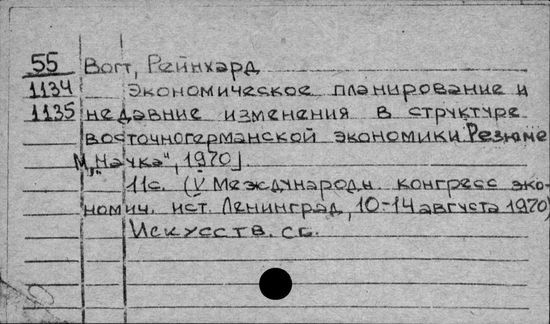 55 Вогт, Рейнхард
1134 Экономическое планирование и
1135 недавние изменения в структуре
восточногерманской экономики. Резюме
М., "Наука", 1970]
11с. (V Международн. конгресс эко-
номич. ист. Ленинград, 10-14 августа 1970)
Искусств. сб.